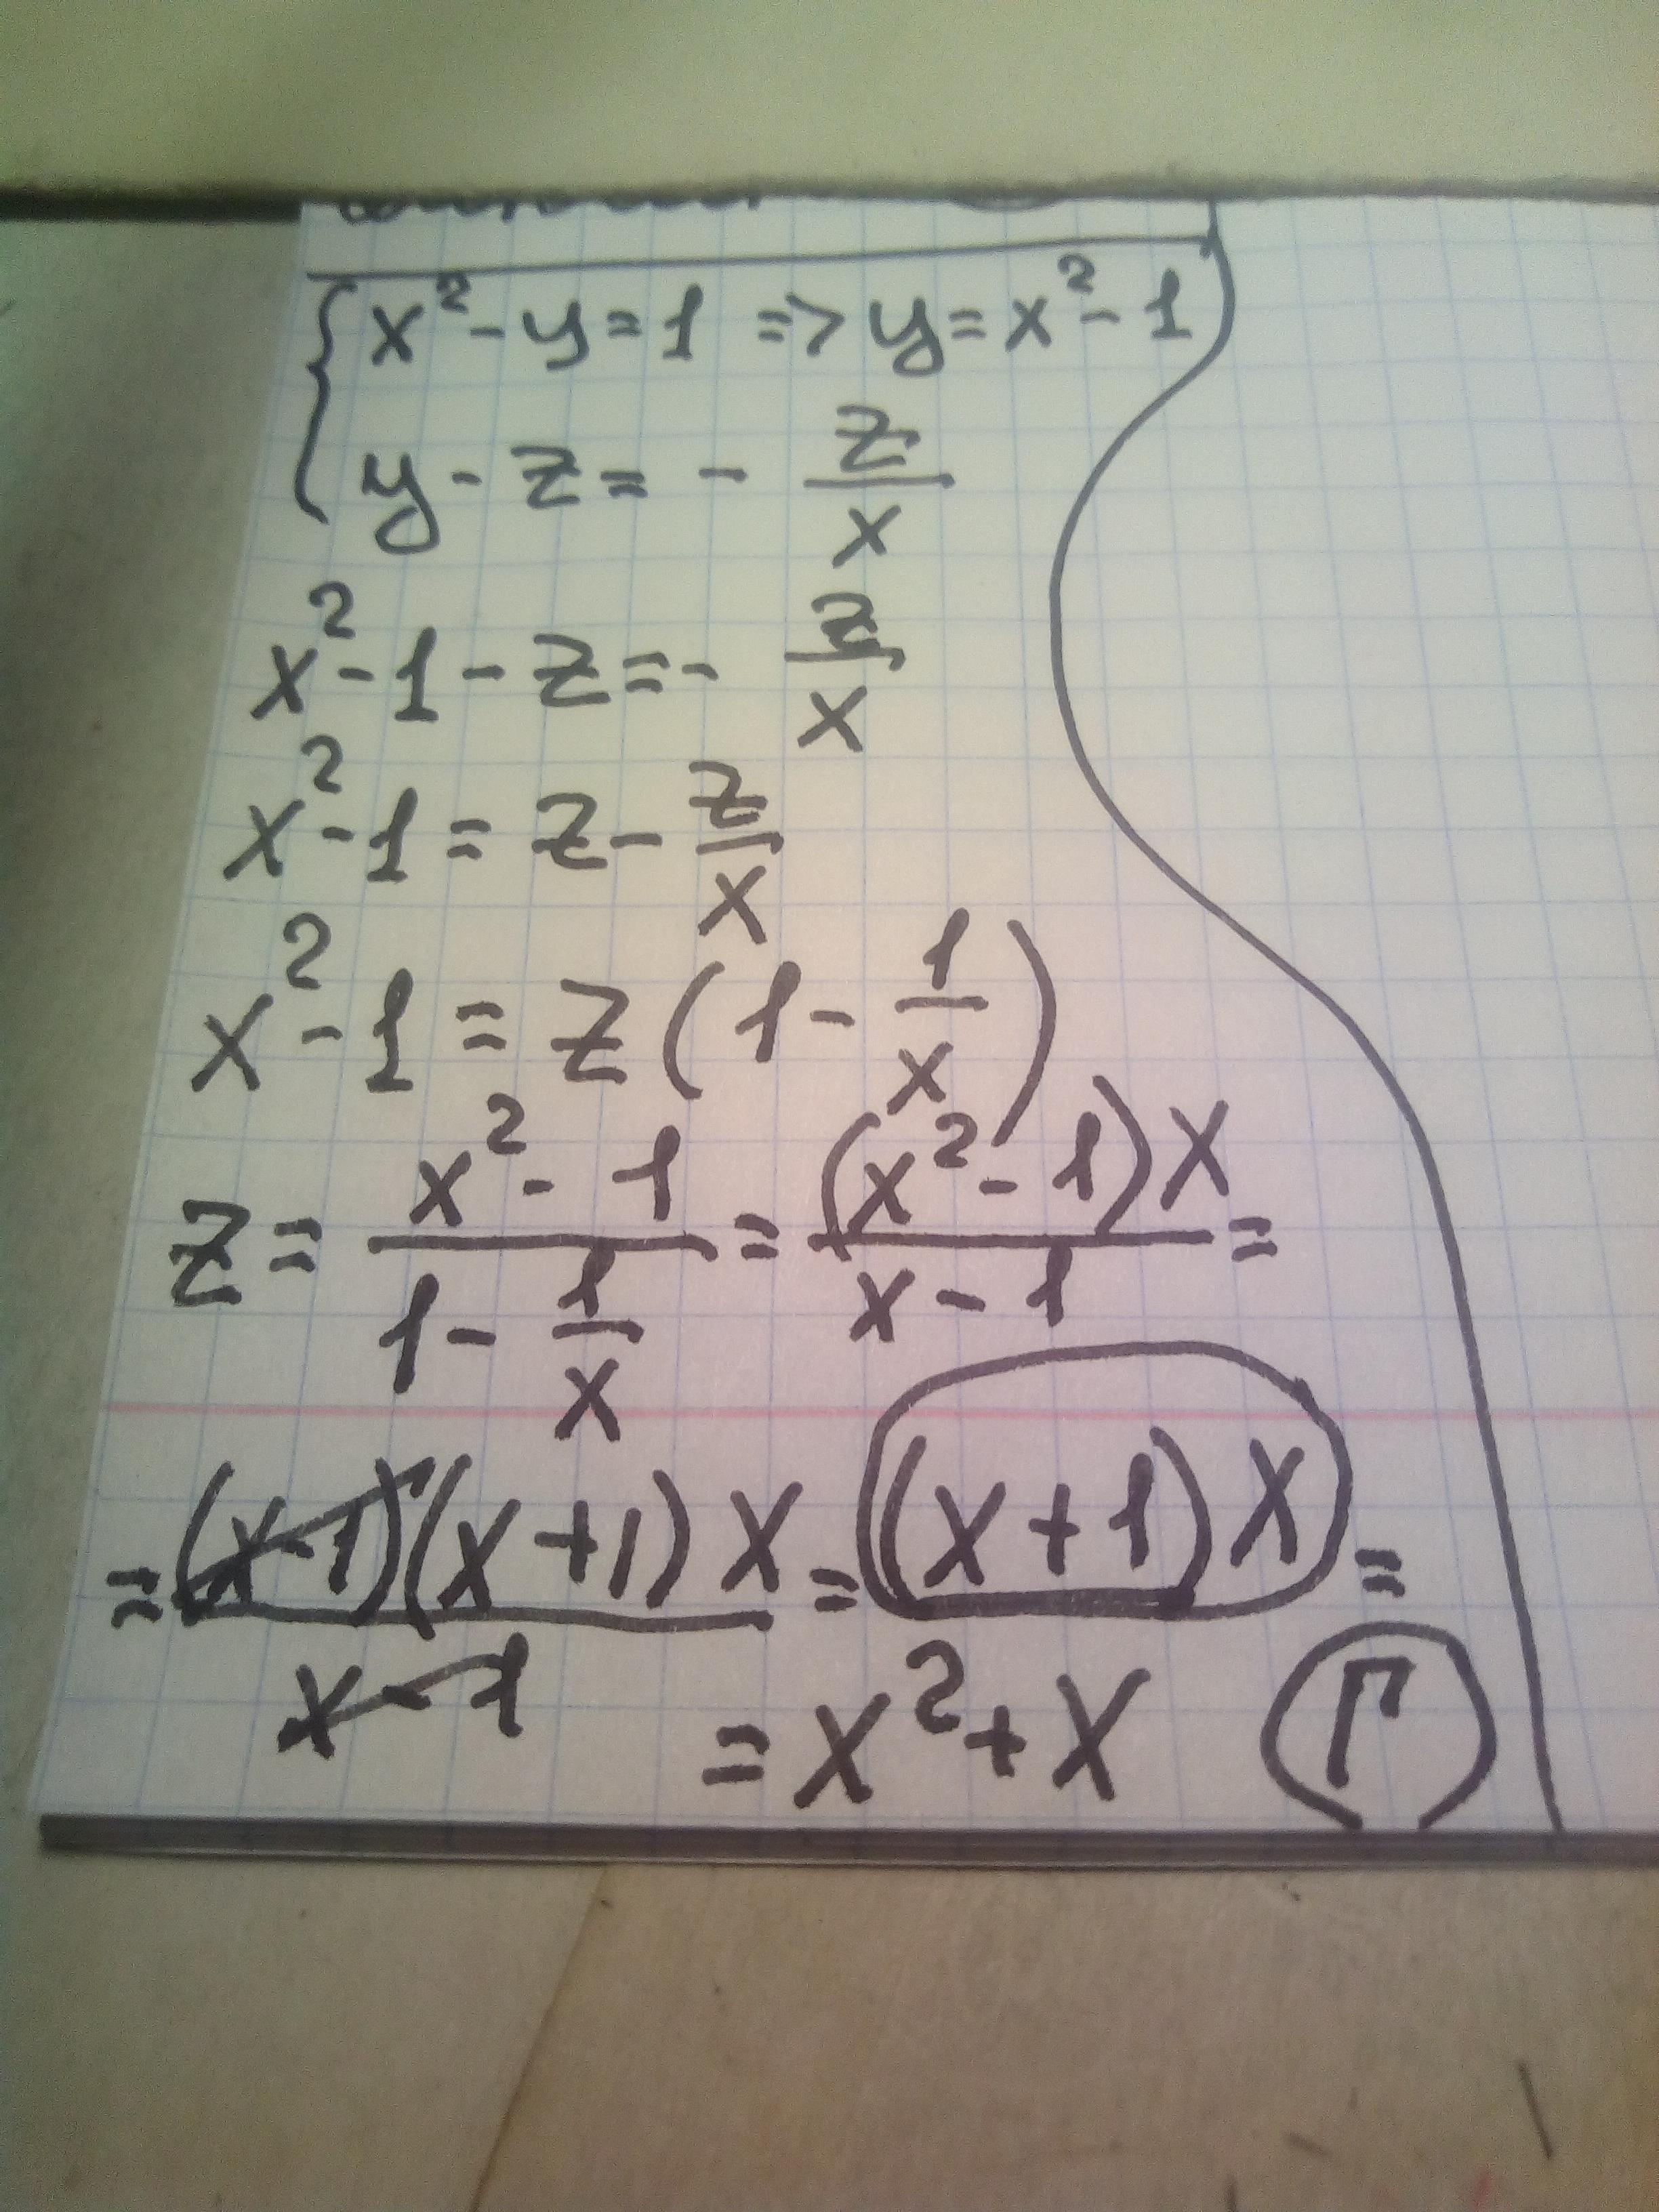 x² - y = 1 => y = x² - 1
y - z = - z/x
x² - 1 - z = - z/x
x² - 1 = z - z/x
x² - 1 = z (1 - 1/x)
z = (x² - 1)/(1 - 1/x) = (x² - 1)x/(x - 1) =
= (x-1)(x+1)x/(x-1) = (x+1)x =
= x² + x Г